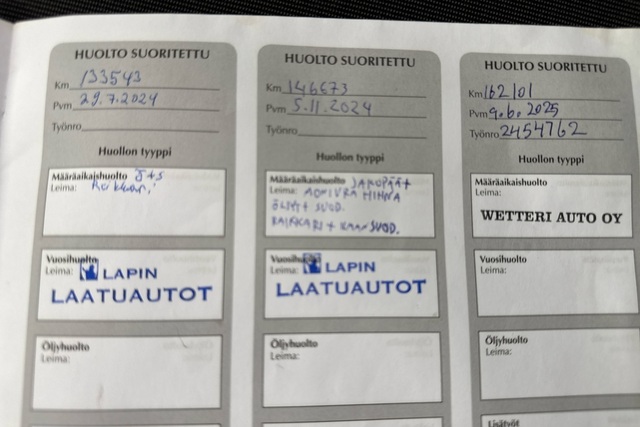 HUOLTO SUORITETTU
Km 133543
Pvm 29.7.2024
Työnro
Huollon tyyppi
Määräaikaishuolto Ö+S
Leima:
Vuosihuolto
Leima: LAPIN
LAATUAUTOT
Öljyhuolto
Leima:
HUOLTO SUORITETTU
Km 146673
Pvm 5.11.2024
Työnro
Huollon tyyppi
Määräaikaishuolto JAKOPÄÄ+
Leima: HIHNA
ÖLJYT + SUOD.
RAIKKARI + KAAN SUOD.
Vuosihuolto
Leima: LAPIN
LAATUAUTOT
Öljyhuolto
Leima:
HUOLTO SUORITETTU
Km 162101
Pvm 9.6.2025
Työnro 2454762
Huollon tyyppi
Määräaikaishuolto
Leima:
WETTERI AUTO OY
Vuosihuolto
Leima:
Öljyhuolto
Leima:
Lisätyöt